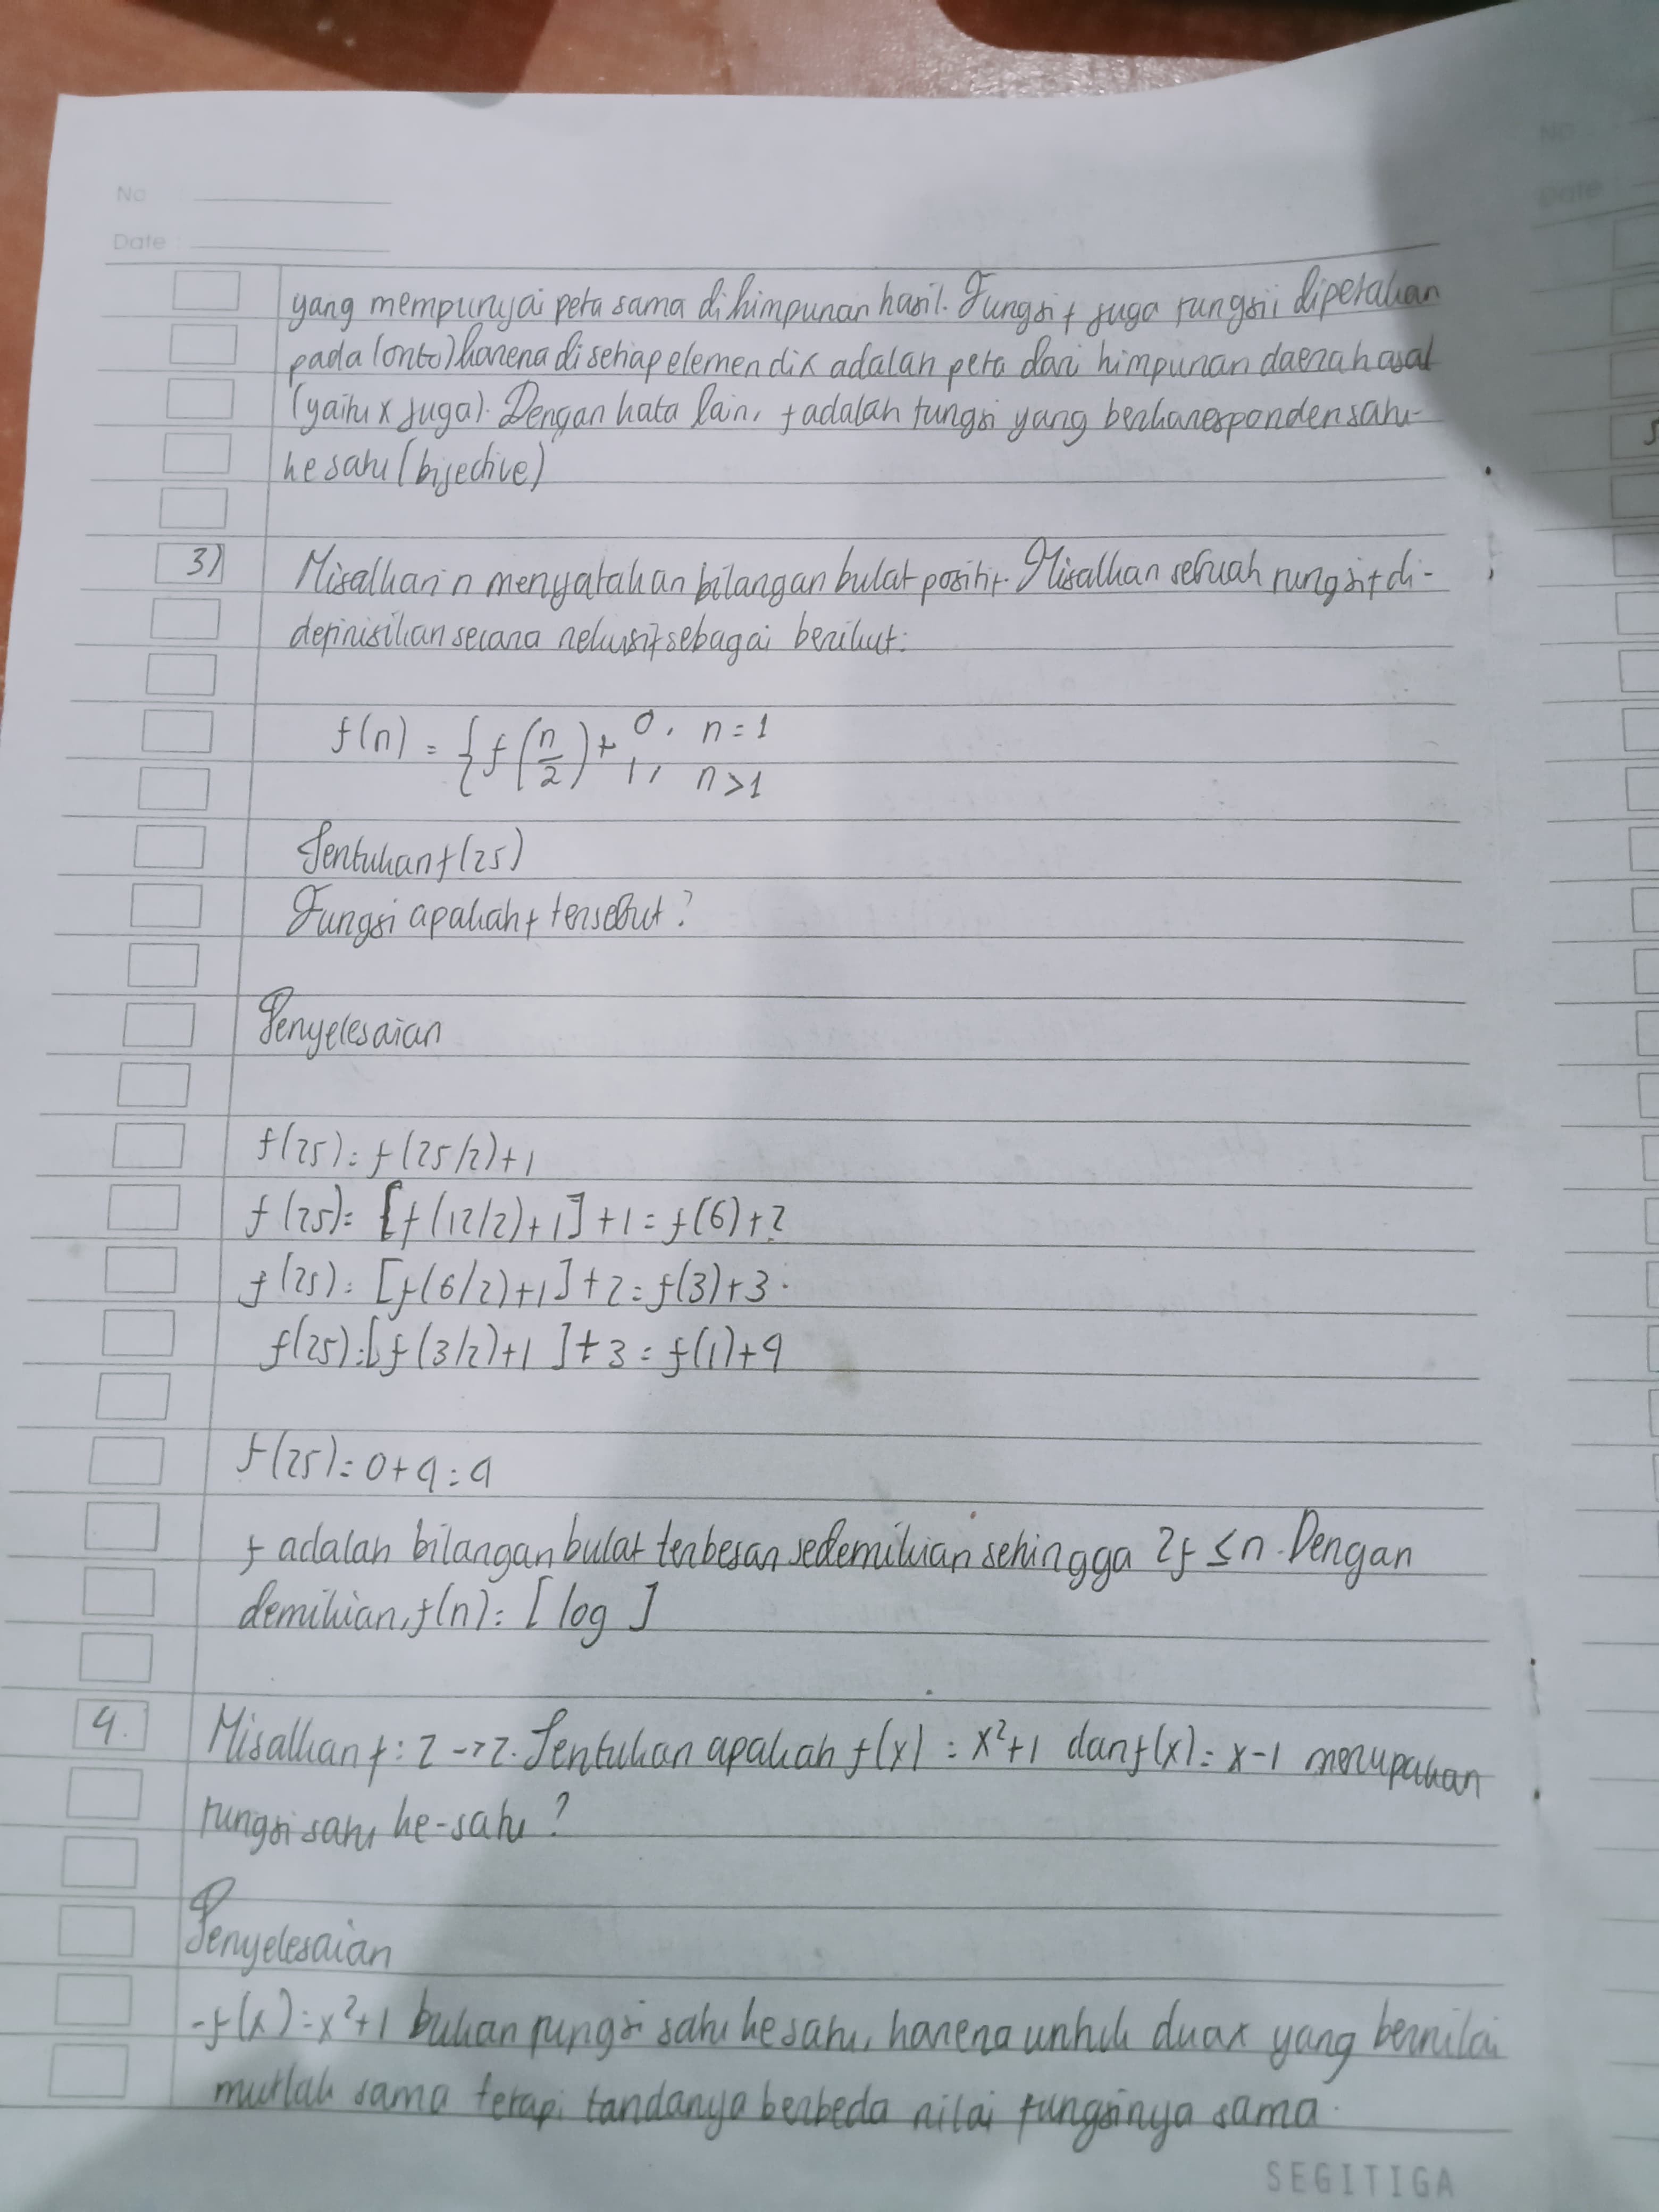 No
Date :
yang mempunyai peta sama di himpunan hasil. Fungsi f juga fungsii dipetakan
pada (onto) karena di setiap elemen di x adalah peta dari himpunan daerah asal
(yaitu x juga). Dengan kata lain, f adalah fungsi yang berkaresponden satu-
ke satu (bijective)
3) Misalkan n menyatakan bilangan bulat positif. Misalkan sebuah fungsi f di-
definisikan secara rekursif sebagai berikut:
f(n) = { f(n/2) + 0, n = 1
1, n > 1
Tentukan f(25)
Fungsi apakah f tersebut?
Penyelesaian
f(25) = f(25/2)+1
f(25) = [f(12/2)+1] +1 = f(6)+2
f(25) = [f(6/2)+1] +2 = f(3)+3.
f(25) = [f(3/2)+1] +3 = f(1)+4
f(25) = 0+4 = 4
f adalah bilangan bulat terbesar sedemikian sehingga 2f ≤ n. Dengan
demikian, f(n) = [log ]
4. Misalkan f : Z → Z. Tentukan apakah f(x) = x²+1 dan f(x) = x-1 merupakan
fungsi satu ke-satu?
Penyelesaian
- f(x) = x²+1 bukan fungsi satu ke satu, karena untuk dua x yang bernilai
mutlak sama tetapi tandanya berbeda nilai fungsinya sama.
SEGITIGA
No
Date :